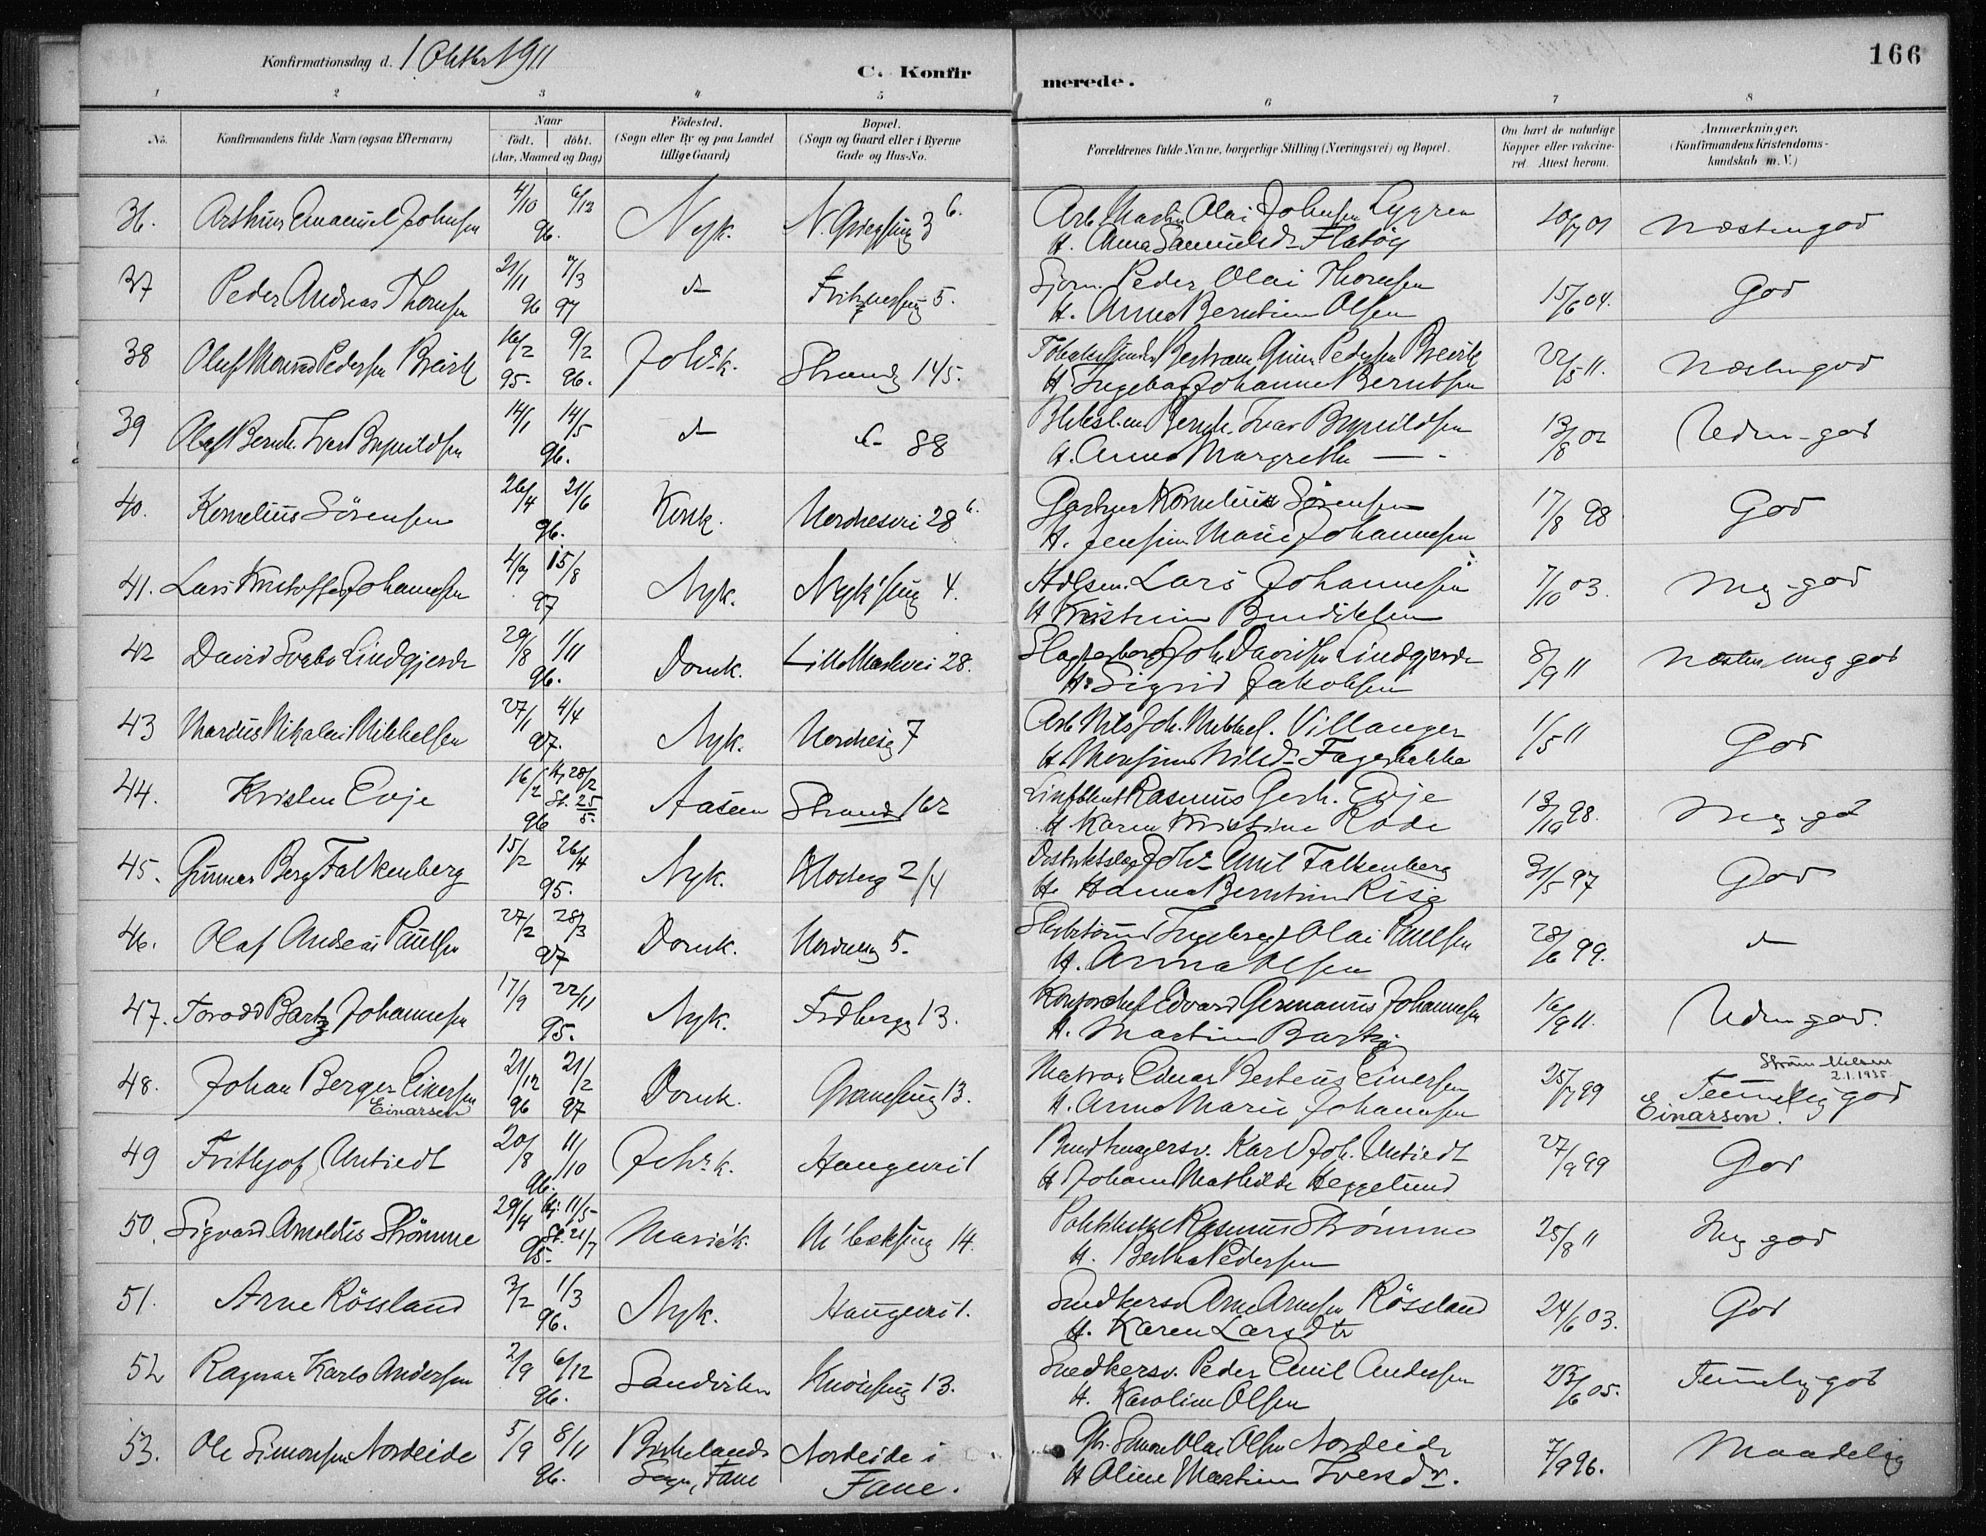 Konfirmationsdag d. 1 Oktbr 1911
C. Konfir
merede.
166
1 2 3 4 5 6 7 8
No. Konfirmandens fulde Navn (ogsaa Efternavn) Naar født. døbt. (Aar, Maaned og Dag) Fødested. (Sogn eller By og paa Landet tillige Gaard) Bopæl. (Sogn og Gaard eller i Byerne Gade og Hus-No. Forældrenes fulde Navne, borgerlige Stilling (Næringsvei) og Bopæl. Om havt de naturlige Kopper eller vaccineret. Attest herom. Anmærkninger. (Konfirmandens Kristendomskundskab m. V.)
36. Arthur Emanuel Johnsen 4/10 6/12 96. Nyk. Arb. Martin Olai Johnsen Lygren 10/7 01 Næsten god
H. Anna Samuelsdr Flatøy
37 Peder Andreas Thomsen 21/11 96 7/3 97 d Fritznersmg 5. Sjøm. Peder Olai Thomsen 15/6 04. God
H. Anna Berntine Olsen
38 Oluf Monrad Pedersen Breivik 16/2 95. 9/2 96. Johsk. Strandg 145. Pedersen Breivik 22/5 11. Næsten god
H. Ingeborg Johanne Berntsen
39 Olaf Bernh. Ivar Brynildsen 14/1 14/5 96. d d 88 Bernh. Ivar Brynildsen 13/8 02 Uden-god
H. Anna Margrethe —
40. Kornelius Sørensen 26/4 21/6 96. Korsk. Nordnesvei 28 b. Gartner Kornelius Sørensen 17/8 98 God
H. Jensine Marie Johannesen
41. Lars Kristoffer Johannesen 4/7 15/8 97 Nyk. Nyk'smg 4. Lars Johannesen 7/10 03. Mg-god
H Kristine Bendiktsen
42 David Svebo Lindgjerde 29/8 1/11 96. Domk. Lille Markevei 28. Joh. Davidsen Lindgjerde 8/9 11 Næsten meg god
H. Sigrid Jakobsen
43 Marius Nikolai Mikkelsen 27/1 4/4 97. Nyk. Nordnesg 7 Arb. Nils Joh. Mikkels. Villanger 1/5 11 God
H. Fagerbakke
44. Kristen Evje 16/2 96 Hj. 28/2 St. 25/5. Aasen Strandg 162 Rasmus Gerh. Evje 13/10 98. Meg-god
H Karen Kristine Rode
45. Gunnar Berg Falkenberg 15/2 26/4 95. Nyk. Klosterg 2/4 Emil Falkenberg 31/5 97 God
H. Hanna Berntine Risø
46. Olaf Andreas Paulsen 27/2 28/3 97 Domk. Nordnesg 5. Ingebrigt Olai Paulsen 28/6 99. d
H. Anna Olsen
47. Torodd Bartz Johannesen 17/9 22/11 95. Nyk. 13. Kontorchef Edvard Germanus Johannesen 16/9 11. Uden god.
H. Martine Bartz
48. Johan Berger Einersen 21/12 96 21/2 97 Domk. 13. Matros Einar Berteus Einersen 25/7 99 Temmelig god
Einarsen H. Anna Marie Johannesen Einarsen! Strøm-Nilsen 2.1.1935.
49 Frithjof Untiedt 20/8 11/10 96. Johsk. Haugevei 1 Karl Joh. Untiedt 27/9 99 God
H Johanne Mathilde Heggelund
50. Sigvard Arnoldus Strømme 29/4 Hj. 11/5 St. 21/7 95. Mariak. 14. Rasmus Strømme 25/8 11 Mg god
H. Bertha Pedersen
51. Arne Røssland 3/2 1/3 96. Nyk. Haugevei 1. Snedkersv Arne Arnesen Røssland 24/6 03. God
H. Karen Larsdtr
52 Ragnar Karlo Andersen 2/9 6/12 96. Sandviken 13. Snedkersv. Peder Emil Andersen 23/6 05. Temmelig god
H. Karoline Olsen
53. Ole Simonsen Nordeide 5/9 8/11 96. Birkelands Sogn, Fane Nordeide i Fane. Gbr. Simon Olai Olsen Nordeide 7/9 96. Maadelig
H Oline Martine Iversdr.